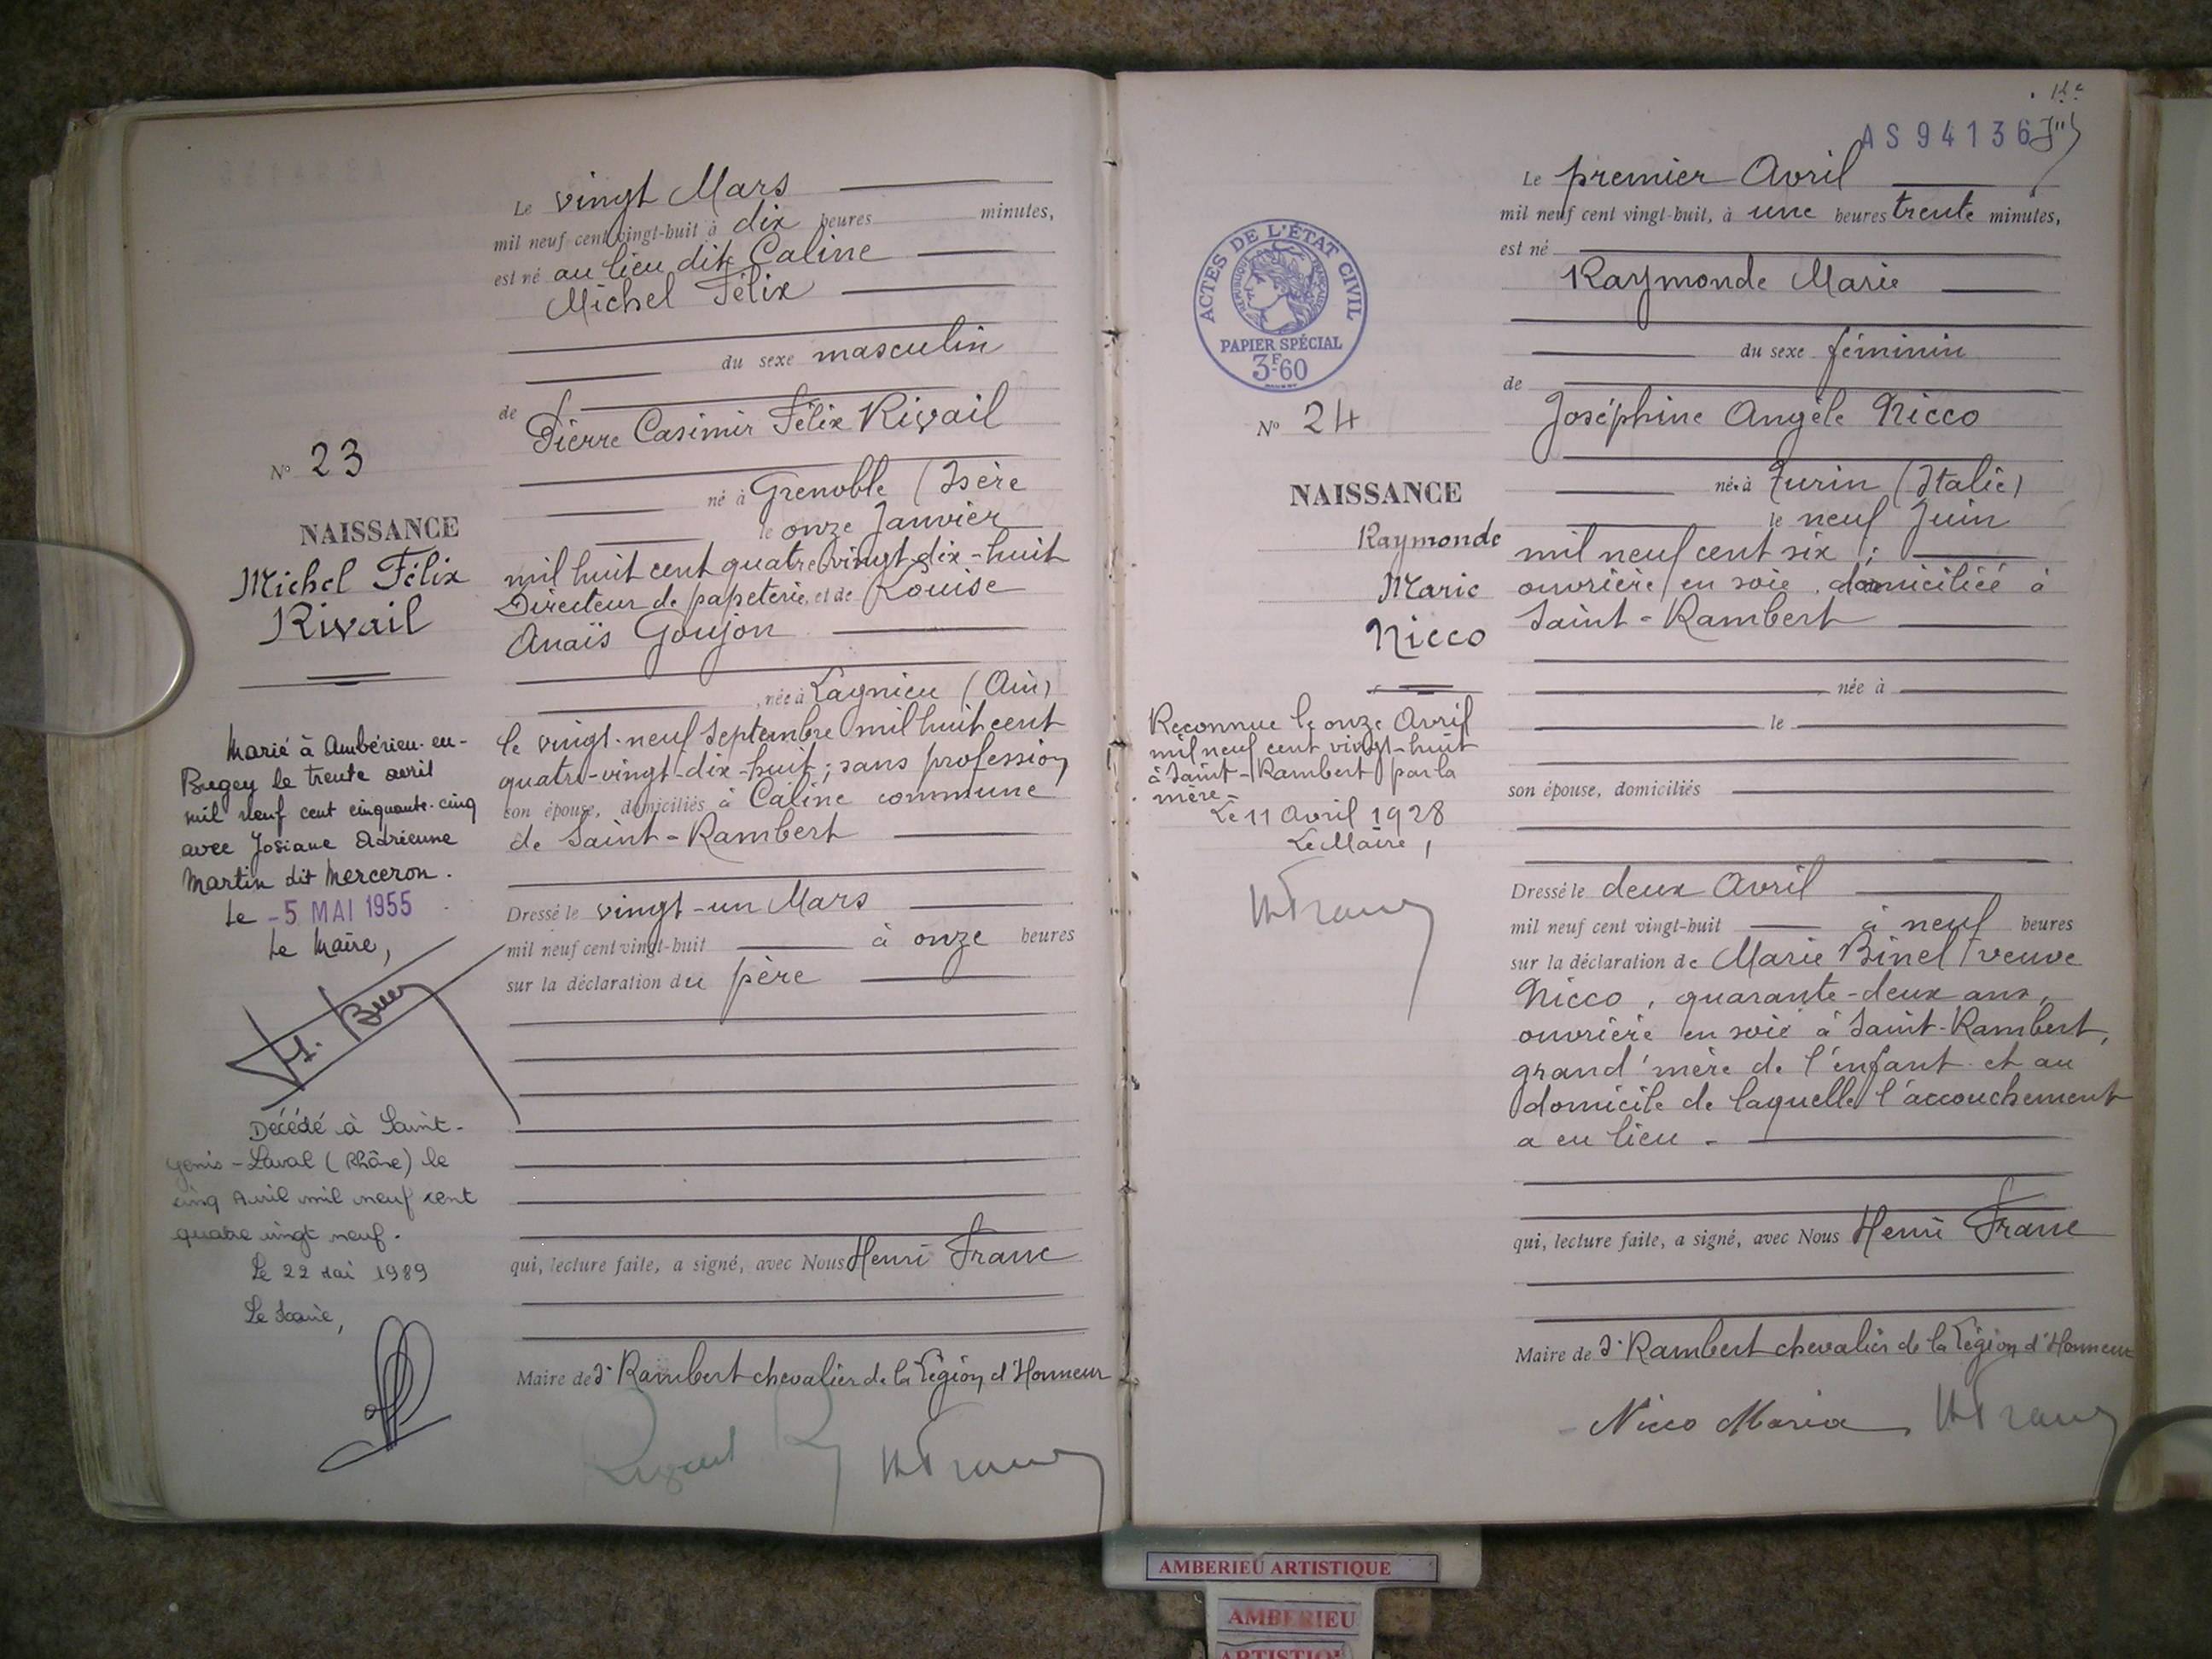 Le vingt Mars
mil neuf cent vingt-huit à dix heures minutes,
est né au lieu dit Caline
Michel Félix
du sexe masculin
de
Pierre Casimir Félix Rivail
né à Grenoble (Isère
le onze Janvier
mil huit cent quatre vingt-dix-huit
Directeur de papeterie, et de Louise
Anaïs Goujon
, née à Lagnieu (Ain)
le vingt-neuf Septembre mil huit cent
quatre-vingt-dix-huit; sans profession,
son épouse, domiciliés à Caline commune
de Saint-Rambert
Dressé le vingt-un Mars
mil neuf cent vingt-huit à onze heures
sur la déclaration du père
qui, lecture faite, a signé, avec Nous Henri Franc
Maire de St Rambert chevalier de la Légion d'Honneur
HFranc
N° 23
NAISSANCE
Michel Félix
Rivail
Marié à Ambérieu-en-
Bugey le trente avril
mil neuf cent cinquante-cinq
avec Josiane Adrienne
Martin dit Merceron.
Le -5 MAI 1955
Le Maire,
Décédé à Saint-
Genis-Laval (Rhône) le
cinq Avril mil neuf cent
quatre vingt neuf.
Le 22 Mai 1989
Le Maire,
AS94136
Le premier Avril
mil neuf cent vingt-huit, à une heures trente minutes,
est né
Raymonde Marie
du sexe féminin
de
Joséphine Angèle Nicco
née à Turin (Italie)
le neuf Juin
mil neuf cent six ;
ouvrière en soie, domiciliée à
Saint-Rambert
née à
le
son épouse, domiciliés
Dressé le deux Avril
mil neuf cent vingt-huit à neuf heures
sur la déclaration de Marie Binel veuve
Nicco, quarante-deux ans,
ouvrière en soie à Saint-Rambert,
grand'mère de l'enfant et au
domicile de laquelle l'accouchement
a eu lieu.
qui, lecture faite, a signé, avec Nous Henri Franc
Maire de St Rambert chevalier de la Légion d'Honneur
Nicco Maria HFranc
ACTES DE L'ÉTAT CIVIL
RÉPUBLIQUE FRANÇAISE
PAPIER SPÉCIAL
3F60
N° 24
NAISSANCE
Raymonde
Marie
Nicco
Reconnue le onze Avril
mil neuf cent vingt-huit
à Saint-Rambert par la
mère.
Le 11 Avril 1928
Le Maire,
HFranc
AMBERIEU ARTISTIQUE
AMBERIEU
ARTISTIQUE